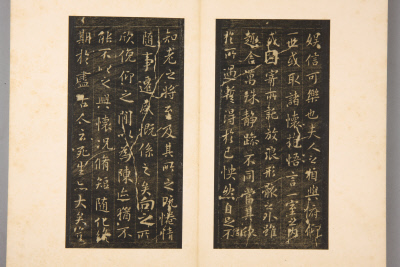 娛信可樂也夫人之相與俯仰
一世或取諸懷抱悟言一室之內
或因寄所託放浪形骸之外雖
趣舍萬殊靜躁不同當其欣
於所遇暫得於己怏然自足不
知老之將至及其所之既惓情
隨事遷感慨係之矣向之所
欣俛仰之間以為陳迹猶不
能不以之興懷況脩短隨化終
期於盡古人云死生亦大矣豈